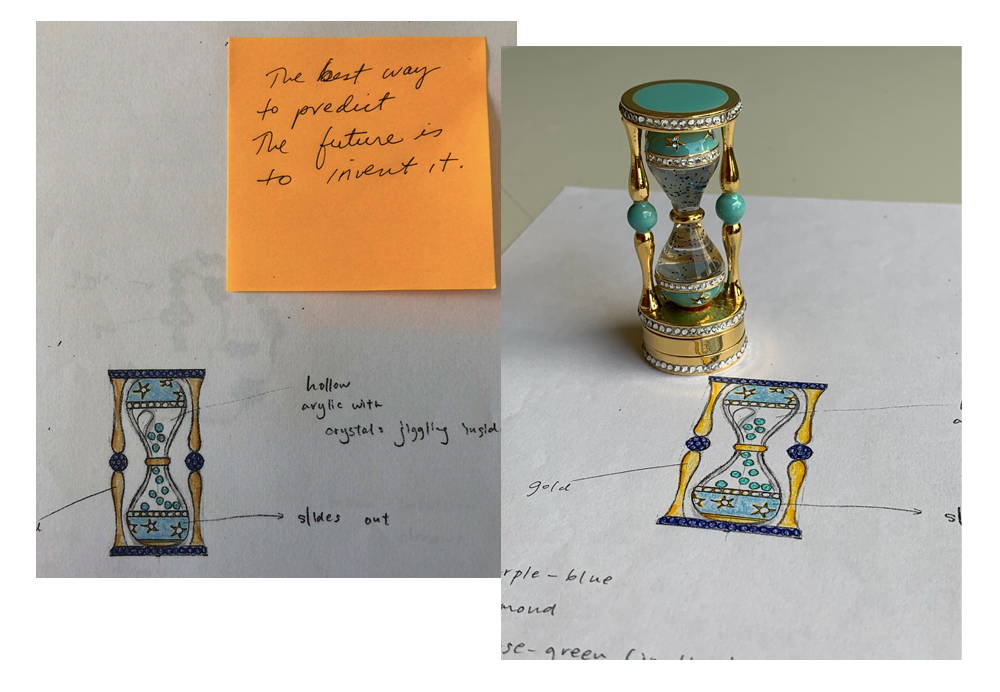 The best way
to predict
The future is
to invent it.
hollow
arylic with
crystals jiggling insid
slides out
gold
rple-blue
mond
se-green